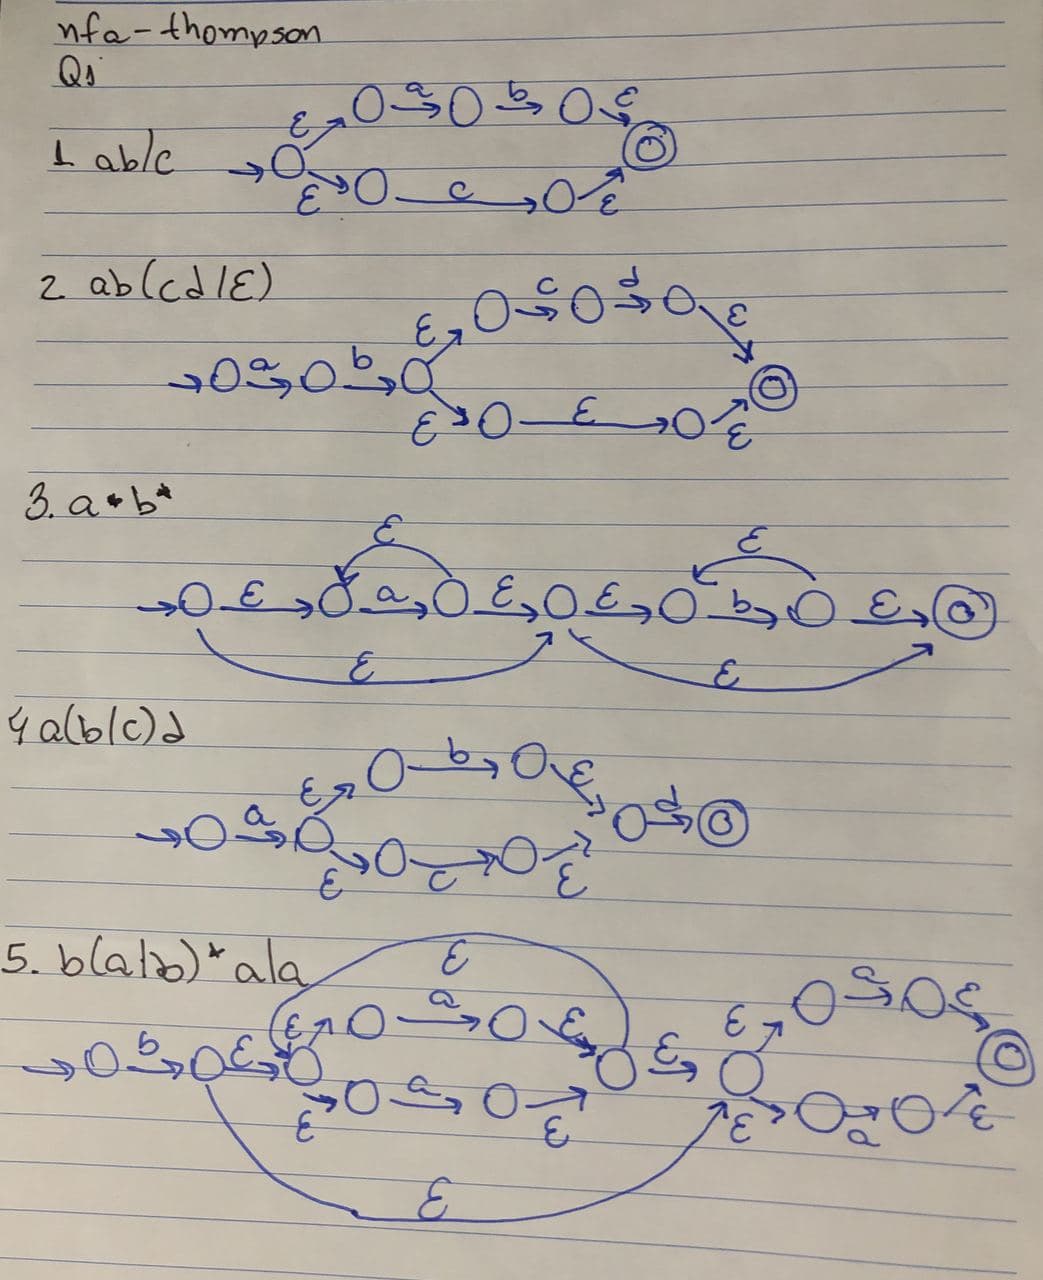 nfa-thompson
Q1
a b ε
ε
1 ab/c
ε c ε
2 ab(cd/ε)
c d
ε ε
a b
ε ε ε
3. a*b*
ε ε
ε a ε ε b ε
ε ε
4 a(b/c)d
b ε
ε
a d
ε c ε
5. b(a|b)*a|a
ε
a ε
ε a ε ε
b ε ε
a
ε ε ε a ε
ε